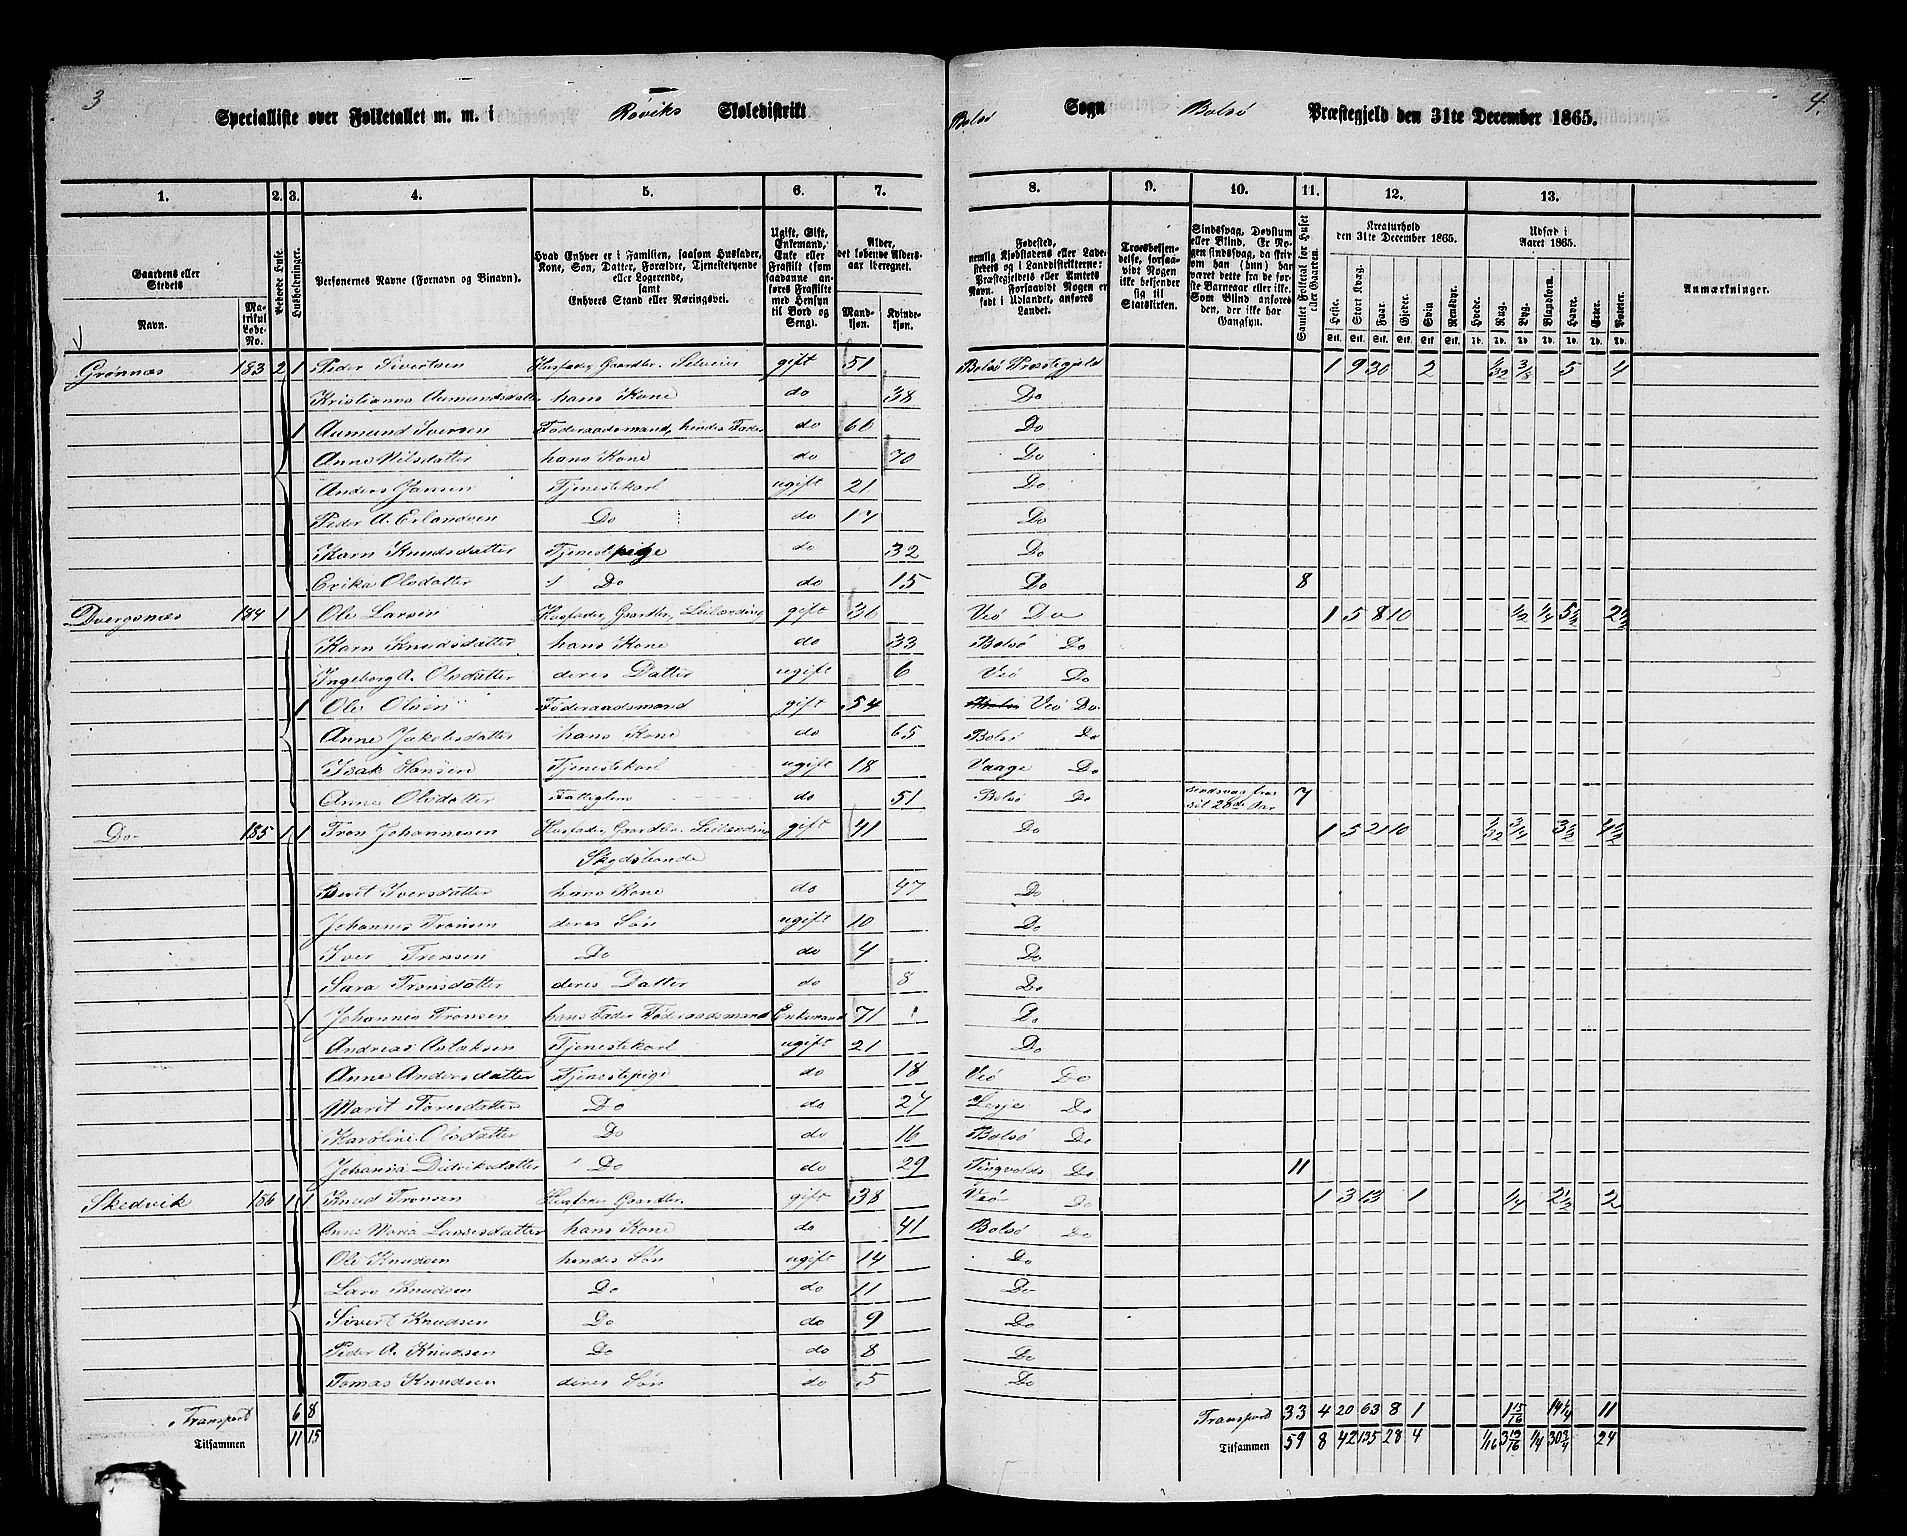 3
Specialliste over Folketallet m. m. i Røviks Skoledistrikt
Bolsø Sogn Bolsø Præstegjeld den 31te December 1865.
4.
1. 2. 3. 4. 5. 6. 7. 8. 9. 10. 11. 12. 13.
Gaardens eller Stedets Navn.
Matrikul Løbe-No.
Beboede Huse.
Husholdninger.
Personernes Navne (Fornavn og Binavn).
Hvad Enhver er i Familien, saasom Husfader, Kone, Søn, Datter, Forældre, Tjenestetyende eller Logerende, samt Enhvers Stand eller Næringsvei.
Ugift, Gift, Enkemand, Enke eller Fraskilt (som saadanne anføres Fraskilte med Hensyn til Bord og Seng).
Alder, det løbende Alders-aar iberegnet.
Mandkjøn. Kvindekjøn.
Fødested, nemlig Kjøbstadens eller Ladestedets og i Landdistrikterne: Præstegjeldets eller Amtets Navn. Forsaavidt Nogen er født i Udlandet, anføres Landet.
Troesbekjendelse, forsaavidt Nogen ikke bekjender sig til Statskirken.
Sindssvag, Døvstum eller Blind. Er Nogen sindssvag, da skrives om han (hun) har været dette fra de første Barneaar eller ikke. Som Blind anføres den, der ikke har Gangsyn.
Samlet Folketal for Huset eller Gaarden.
Kreaturhold den 31te December 1865.
Heste. Stort Kvæg. Faar. Gjeder. Svin. Rensdyr.
Udsæd i Aaret 1865.
Hvede. Rug. Byg. Blandkorn. Havre. Erter. Poteter.
Anmærkninger.
Grønnæs 183 2 1 Peder Sivertsen Husfader, Gaardbr. Selveier gift 51 Bolsø Præstegjeld 1 9 30 2 1/32 3/8 5 4
Kristianna Aumundsdatter hans Kone do 38 Do
1 Aumund Iversen Føderaadsmand, hendes Fader do 60 Do
Anne Nilsdatter hans Kone do 70 Do
Anders Jansen Tjenestekarl ugift 21 Do
Peder A. Erlandsen Do do 17 Do
Karn Knudsdatter Tjenestpige do 32 Do
Erika Olsdatter Do do 15 Do 8
Dvergsnæs 184 1 1 Ole Larsen Husfader, Gaardbr, Leilænding gift 36 Veø Do 1 5 8 10 1/2 1/4 5 1/2 2 1/2
Karn Knudsdatter hans Kone do 33 Bolsø Do
Ingeborg A. Olsdatter deres Datter ugift 6 Veø Do
1 Ole Olsen Føderaadsmand gift 54 Veø Do
Anne Jakobsdatter hans Kone do 65 Bolsø Do
Isak Hansen Tjenestekarl ugift 18 Vaage Do
Anne Olsdatter Fattiglem do 51 Bolsø Do sindsvag fra sit 20de Aar 7
Do 185 1 1 Tron Johannesen Husfader, Gaardbr. Leilænding gift 41 Do 1 5 21 10 1/32 3/4 3 1/2 4 1/2
Skydsbonde
Berit Iversdatter hans Kone do 47 Do
Johannes Tronsen deres Søn ugift 10 Do
Iver Tronsen Do do 4 Do
Sara Tronsdatter deres Datter do 8 Do
1 Johannes Tronsen hans Fader Føderaadsmand Enkemand 71 Do
Andreas Aslaksen Tjenestekarl ugift 21 Do
Anne Andersdatter Tjenestepige do 18 Veø Do
Marit Toresdatter Do do 27 Lesje Do
Karoline Olsdatter Do do 16 Bolsø Do
Johanna Didriksdatter Do do 29 Tingvolds Do 11
Skedvik 186 1 1 Knud Tronsen Husfader Gaardbr. gift 38 Veø Do 1 3 13 1 1/4 2 1/2 2
Anne Maria Larsesdatter hans Kone do 41 Bolsø Do
Ole Knudsen hendes Søn ugift 14 Do
Lars Knudsen Do do 11 Do
Sivert Knudsen Do do 9 Do
Peder A. Knudsen Do do 8 Do
Tomas Knudsen deres Søn do 5 Do
Transport 6 8 Transport 33 4 20 63 8 1 1 15/16 14 1/4 11
Tilsammen 11 15 Tilsammen 59 8 42 135 28 4 1/16 3 13/16 1/4 30 3/4 24